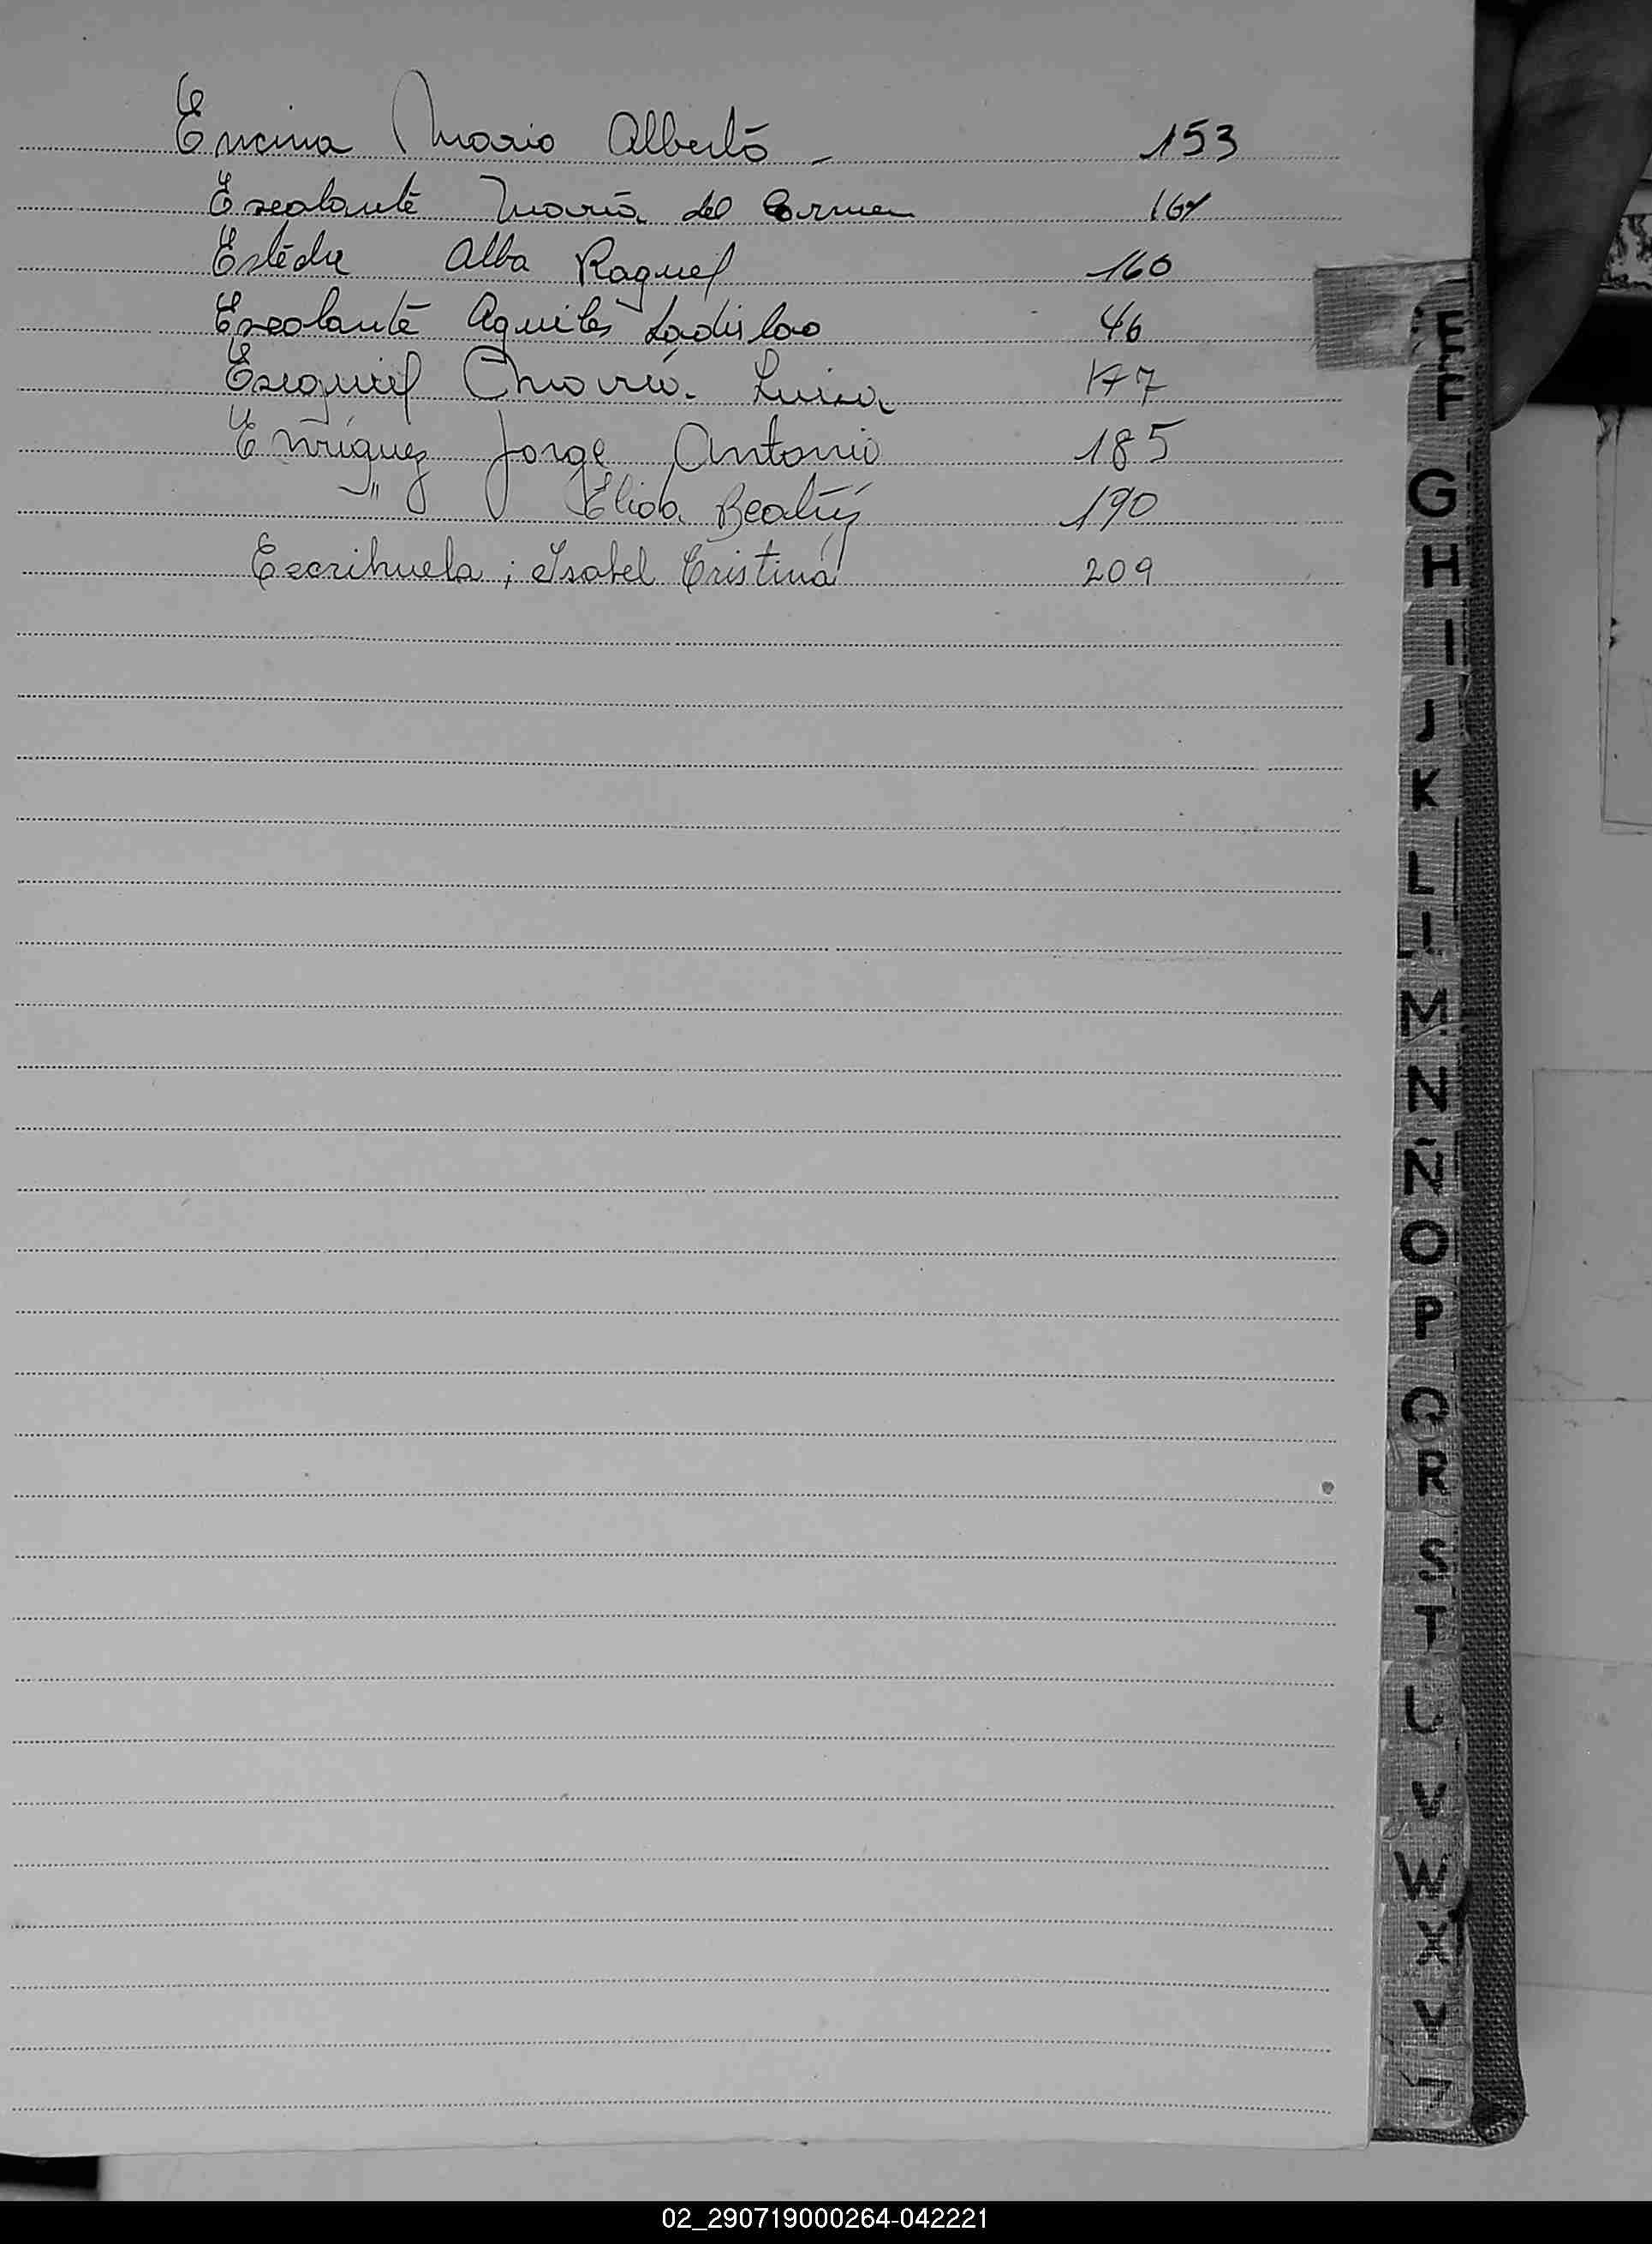 Encina Mario Alberto - 153
Escalante María del Carmen
Alba Raquel 160
Escalante Aquiles Ladislao 46
Luisa 177
Enríquez Jorge Antonio 185
" Elida Beatríz 190
Escrihuela; Isabel Cristina 209
E
F
G
H
I
J
K
L
Ll
M
N
Ñ
O
P
Q
R
S
T
U
V
W
X
Y
Z
02_290719000264-042221